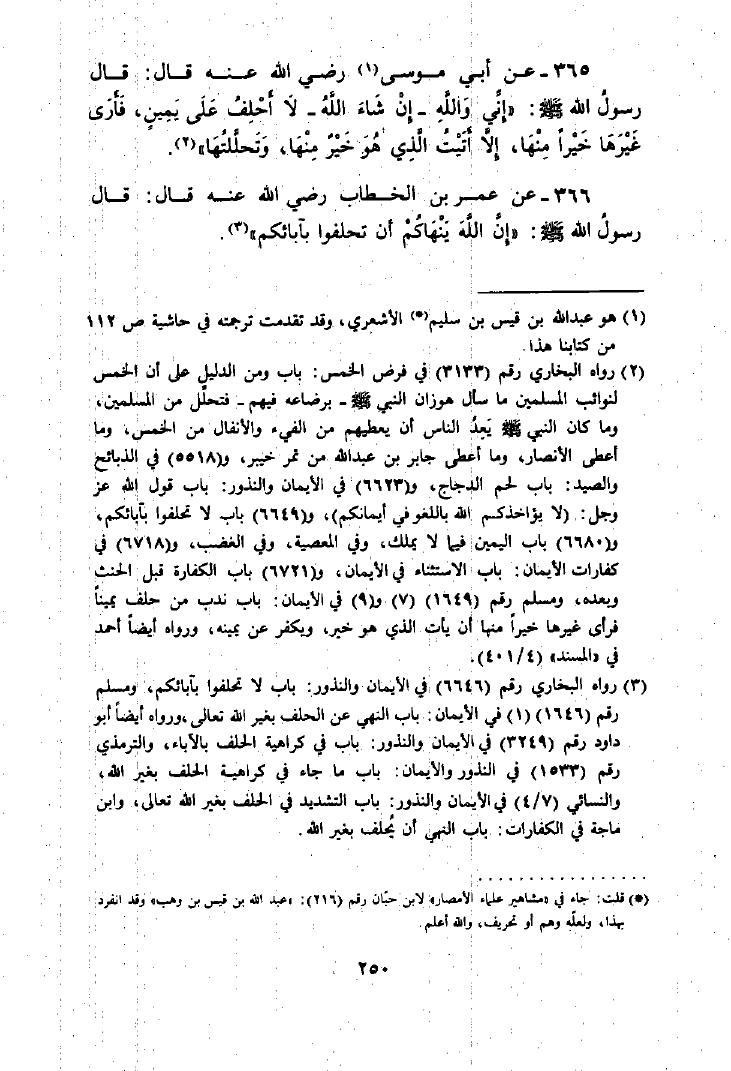 ٣٦٥ ـ عـن أبـي مـوسـى(١) رضـي الله عـنـه قـال: قـال
رسولُ الله ﷺ: «إِنِّي وَاللَّهِ ـ إِنْ شَاءَ اللَّهُ ـ لَا أَحْلِفُ عَلَى يَمِينٍ، فَأَرَى
غَيْرَهَا خَيْراً مِنْهَا، إِلَّا أَتَيْتُ الَّذِي هُوَ خَيْرٌ مِنْهَا، وَتَحلَّلتُهَا»(٢).
٣٦٦ ـ عن عمـر بن الخـطاب رضي الله عنـه قال: قـال
رسولُ الله ﷺ: «إِنَّ اللَّهَ يَنْهَاكُمْ أن تحلفوا بآبائكم»(٣).
(١) هو عبدالله بن قيس بن سليم(*) الأشعري، وقد تقدمت ترجمته في حاشية ص ١١٢
من كتابنا هذا.
(٢) رواه البخاري رقم (٣١٣٣) في فرض الخمس: باب ومن الدليل على أن الخمس
لنوائب المسلمين ما سأل هوزان النبي ﷺ ـ برضاعه فيهم ـ فتحلَّل من المسلمين،
وما كان النبي ﷺ يَعِدُ الناس أن يعطيهم من الفيء والأنفال من الخمس، وما
أعطى الأنصار، وما أعطى جابر بن عبدالله من تمر خيبر، و(٥٥١٨) في الذبائح
والصيد: باب لحم الدجاج، و(٦٦٢٣) في الأيمان والنذور: باب قول الله عز
وجل: (لا يؤاخذكم الله باللغو في أيمانكم)، و(٦٦٤٩) باب لا تحلفوا بآبائكم،
و(٦٦٨٠) باب اليمين فيما لا يملك، وفي المعصية، وفي الغضب، و(٦٧١٨) في
كفارات الأيمان: باب الاستثناء في الأيمان، و(٦٧٢١) باب الكفارة قبل الحنث
وبعده، ومسلم رقم (١٦٤٩) (٧) و(٩) في الأيمان: باب ندب من حلف يميناً
فرأى غيرها خيراً منها أن يأت الذي هو خير، ويكفر عن يمينه، ورواه أيضاً أحمد
في «المسند» (٤٠١/٤).
(٣) رواه البخاري رقم (٦٦٤٦) في الأيمان والنذور: باب لا تحلفوا بآبائكم، ومسلم
رقم (١٦٤٦) (١) في الأيمان: باب النهي عن الحلف بغير الله تعالى، ورواه أيضاً أبو
داود رقم (٣٢٤٩) في الأيمان والنذور: باب في كراهية الحلف بالآباء، والترمذي
رقم (١٥٣٣) في النذور والأيمان: باب ما جاء في كراهية الحلف بغير الله،
والنسائي (٤/٧) في الأيمان والنذور: باب التشديد في الحلف بغير الله تعالى، وابن
ماجة في الكفارات: باب النهي أن يُحلف بغير الله.
(*) قلت: جاء في «مشاهير علماء الأمصار» لابن حبّان رقم (٢١٦): «عبد الله بن قيس بن وهب» وقد انفرد
بهذا، ولعلّه وهم أو تحريف، والله أعلم.
٢٥٠